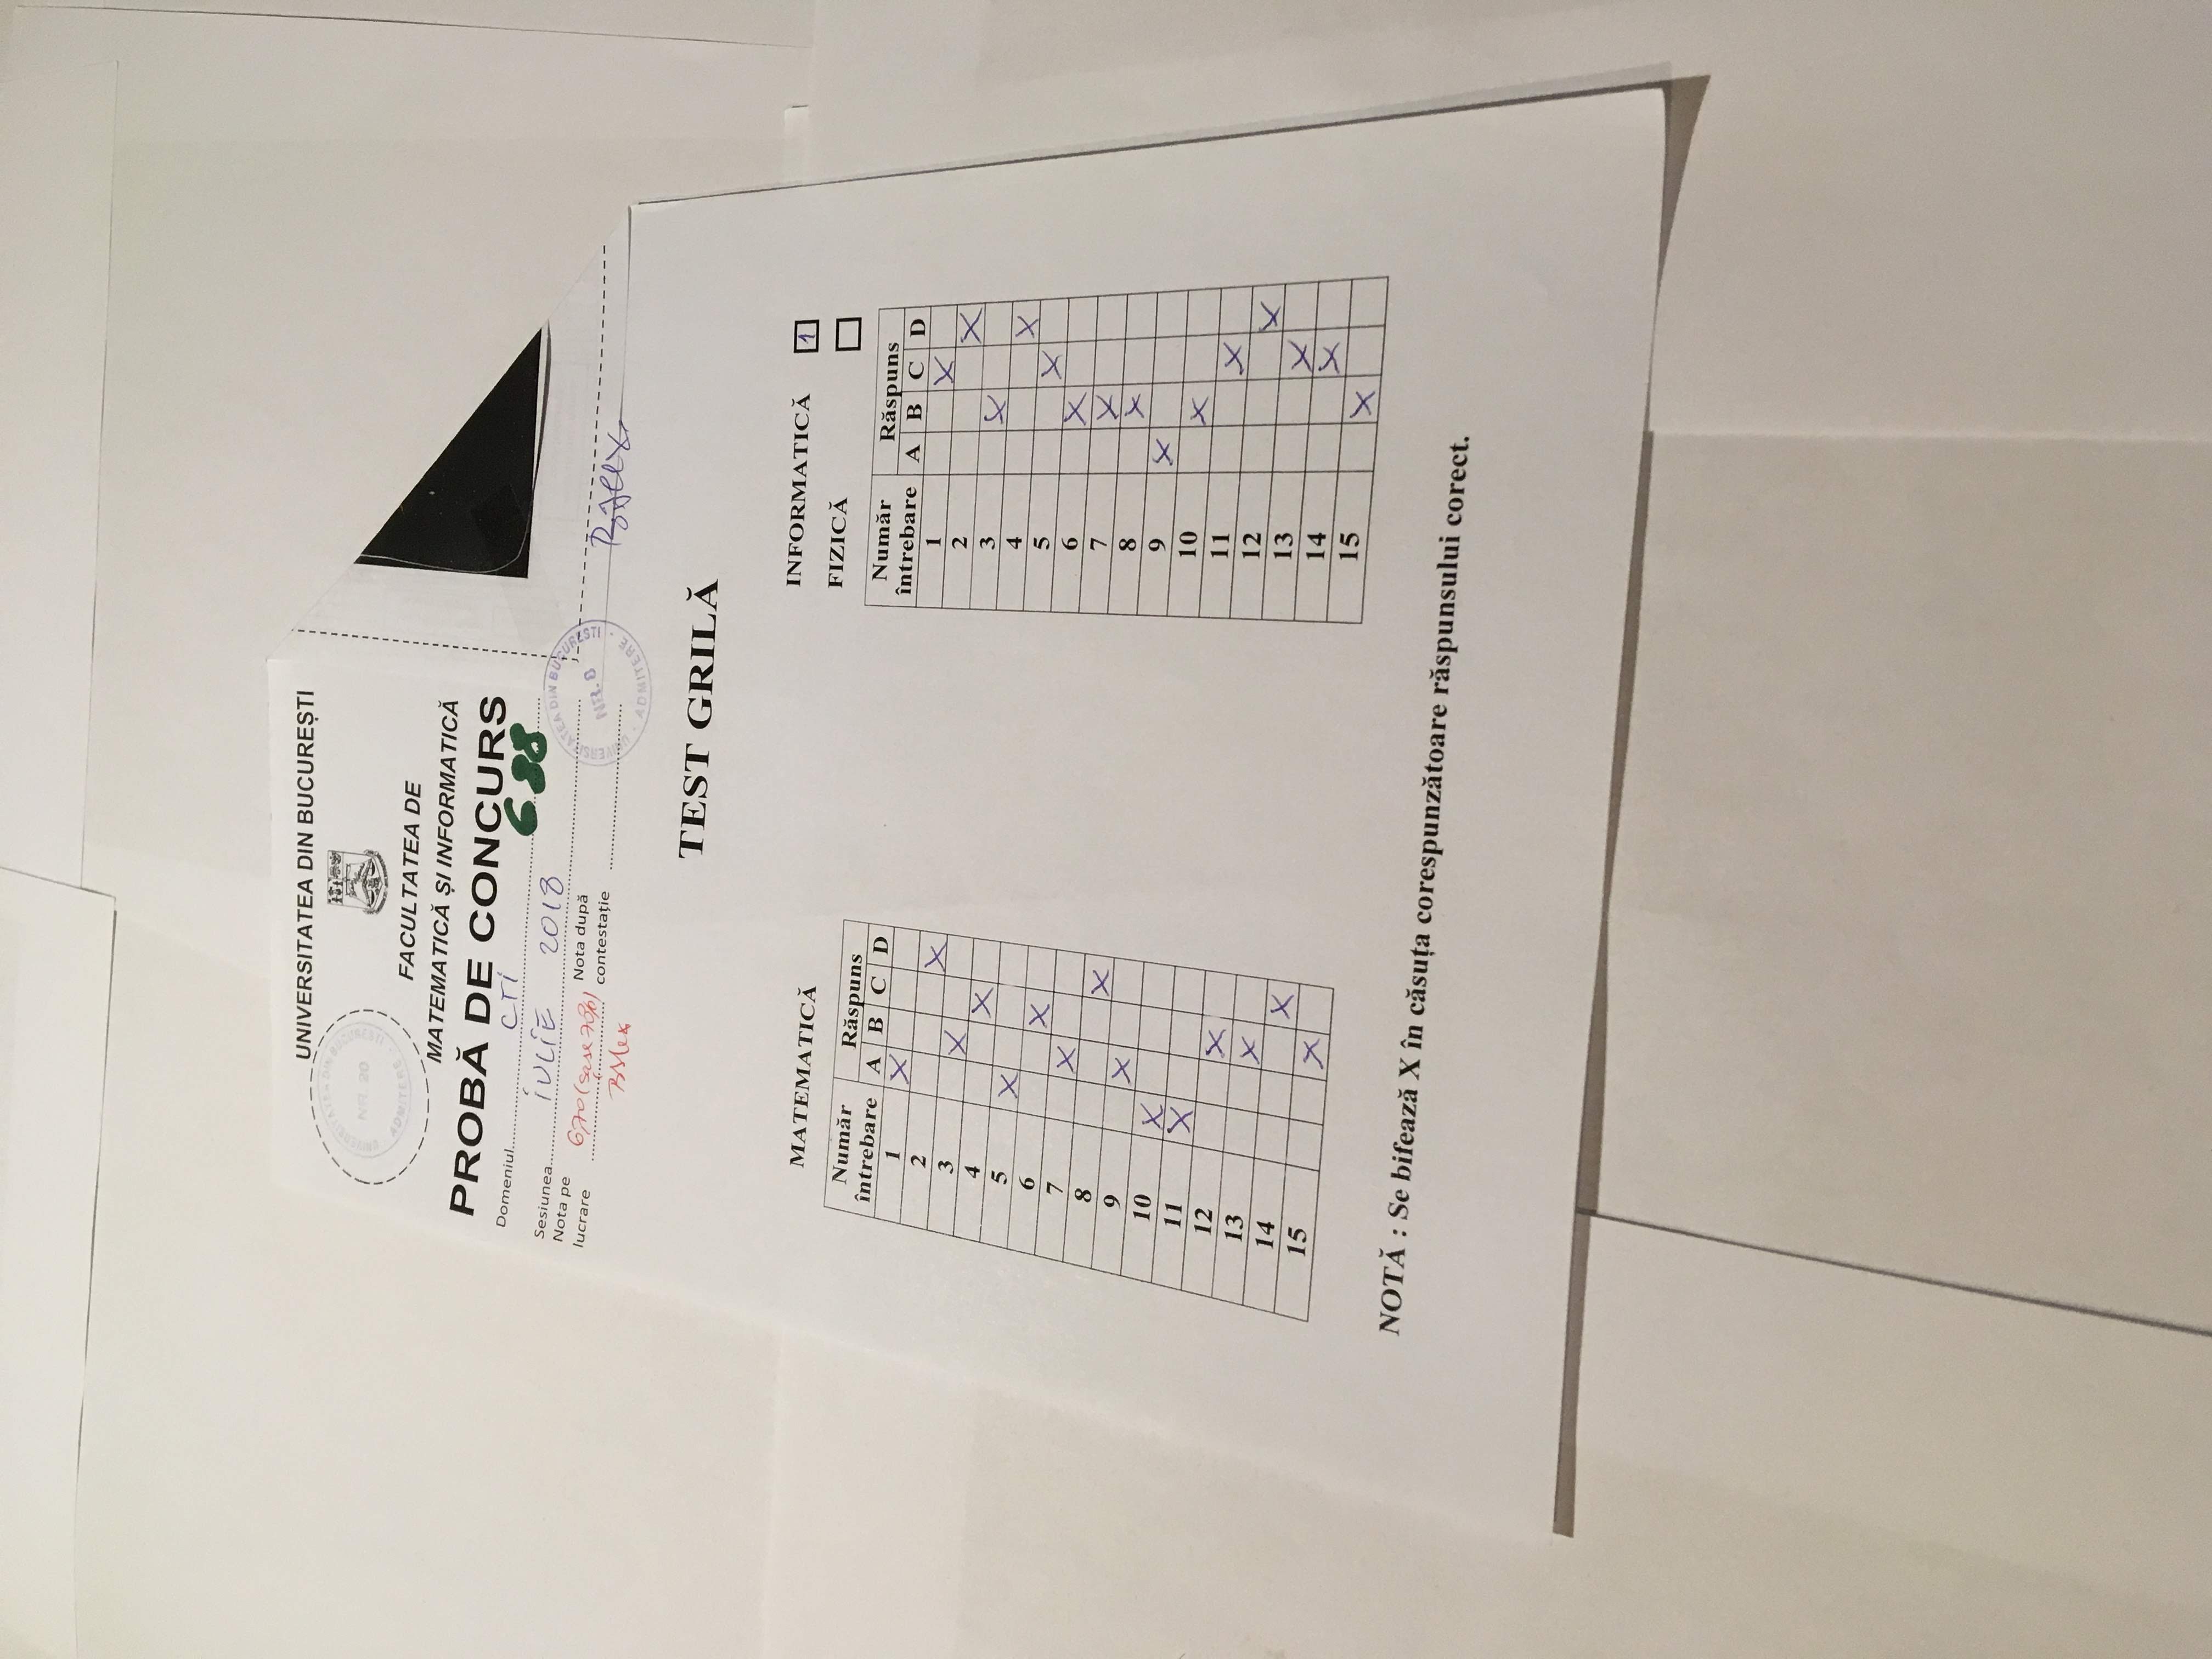 UNIVERSITATEA DIN BUCUREȘTI
UNIVERSITATEA DIN BUCUREȘTI
NR. 20
ADMITERE
FACULTATEA DE
MATEMATICĂ ȘI INFORMATICĂ
PROBĂ DE CONCURS
Domeniul CTI 638
Sesiunea IULIE 2018
Nota pe lucrare 6,70 (șase 70%)
Nota după contestație
UNIVERSITATEA DIN BUCUREȘTI
NR. 8
ADMITERE
TEST GRILĂ
MATEMATICĂ
Număr întrebare Răspuns
A B C D
1 X
2 X
3 X
4 X
5 X
6 X
7 X
8 X
9 X
10 X
11 X
12 X
13 X
14 X
15 X
INFORMATICĂ 1
FIZICĂ
Număr întrebare Răspuns
A B C D
1 X
2 X
3 X
4 X
5 X
6 X
7 X
8 X
9 X
10 X
11 X
12 X
13 X
14 X
15 X
NOTĂ : Se bifează X în căsuța corespunzătoare răspunsului corect.